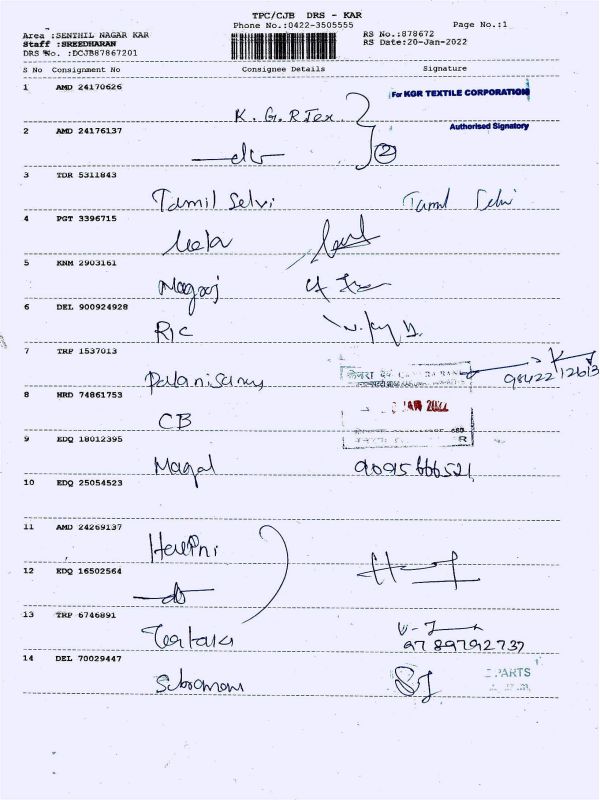 TPC/CJB DRS - KAR
Phone No.:0422-3505555 Page No.:1
Area :SENTHIL NAGAR KAR RS No.:878672
Staff :SREEDHARAN RS Date:20-Jan-2022
DRS No. :DCJB87867201
S No Consignment No Consignee Details Signature
1 AMD 24170626 For KGR TEXTILE CORPORATION
K.G.R Tex
2 AMD 24176137 Authorised Signatory
2
3 TDR 5311843
Tamil Selvi Tamil Selvi
4 PGT 3396715
5 KNM 2903161
Nagaraj
6 DEL 900924928
RIC
7 TRP 1537013
Palanisamy 98422 12613
8 HRD 74861753 JAN 2022
CB
9 EDQ 18012395 R
Magal 9095666521
10 EDQ 25054523
11 AMD 24269137
12 EDQ 16502564
13 TRP 6746891
9789792737
14 DEL 70029447 PARTS